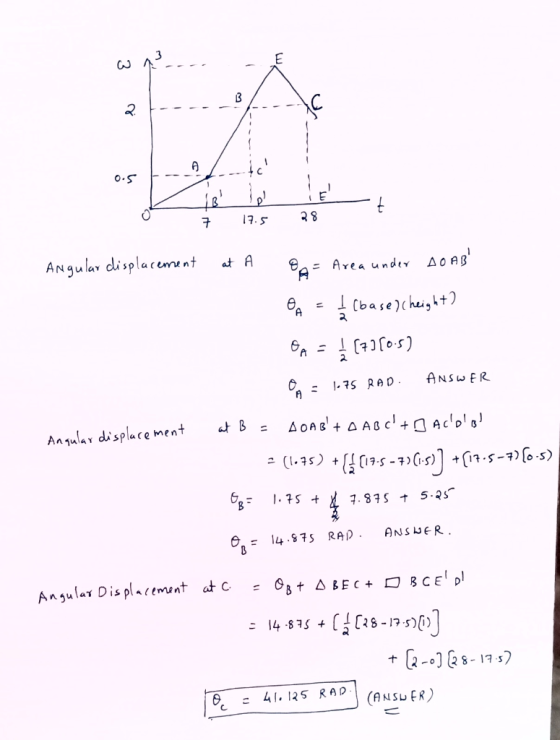 ω 3 E
2 B C
0.5 A C'
O B' D' E' t
7 17.5 28
Angular displacement at A θA = Area under ΔOAB'
θA = 1/2 (base)(height)
θA = 1/2 [7][0.5]
θA = 1.75 RAD. ANSWER
Angular displacement at B = ΔOAB' + ΔABC' + □ AC'D'B'
= (1.75) + [1/2 [17.5-7)(1.5)] + [17.5-7)[0.5)
θB = 1.75 + 7.875 + 5.25
θB = 14.875 RAD. ANSWER.
Angular Displacement at C. = θB + ΔBEC + □ BCE'D'
= 14.875 + [1/2 [28-17.5)(1)]
+ [2-0][28-17.5)
θc = 41.125 RAD. (ANSWER)